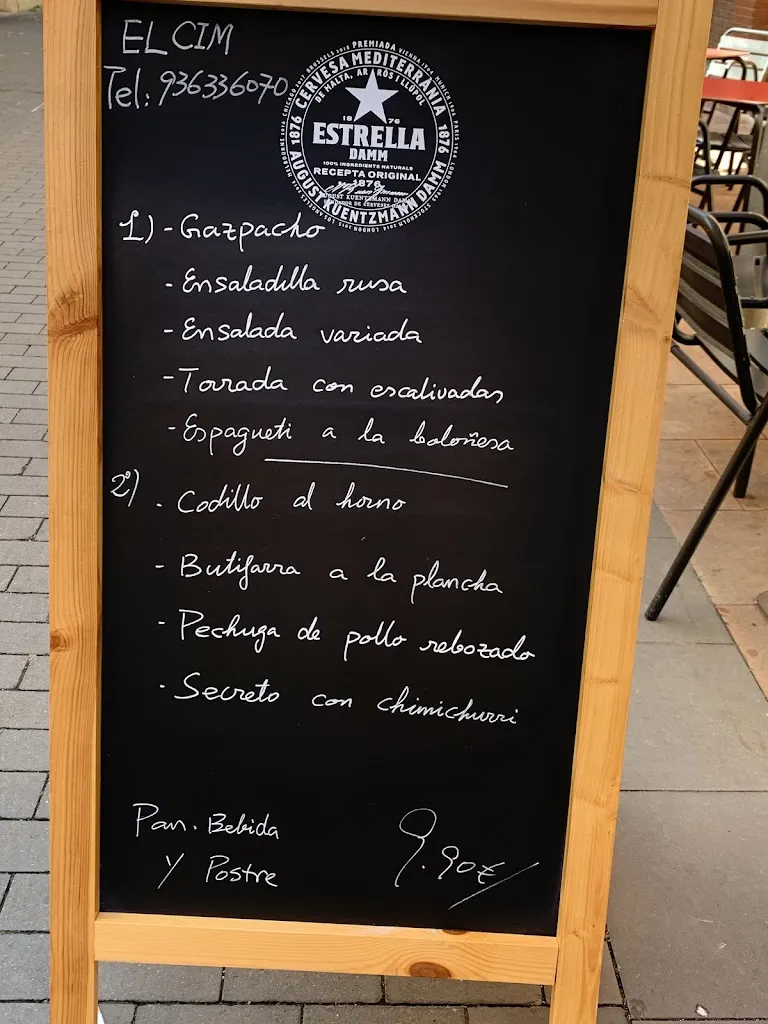 EL CIM
Tel: 936336070
PREMIADA
CERVESA MEDITERRÀNIA
DE MALTA, ARRÒS I LLÚPOL
1876
1876
1876
ESTRELLA
DAMM
100% INGREDIENTS NATURALS
RECEPTA ORIGINAL
1876
AUGUST KUENTZMANN DAMM
AUGUST KUENTZMANN DAMM
1) - Gazpacho
- Ensaladilla rusa
- Ensalada variada
- Torrada con escalivadas
- Espagueti a la boloñesa
2º) - Codillo al horno
- Butifarra a la plancha
- Pechuga de pollo rebozado
- Secreto con chimichurri
Pan. Bebida
Y Postre
9.90€